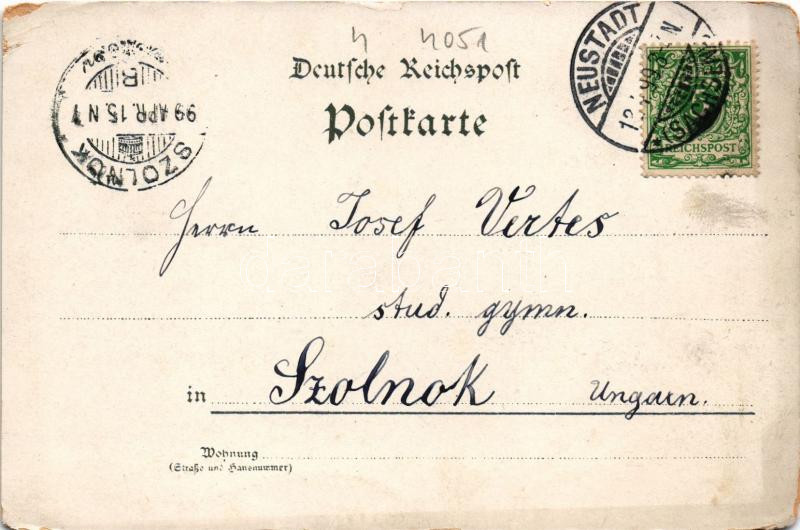 4 4051
Deutsche Reichspost
Postkarte
NEUSTADT
REICHSPOST
SZOLNOK
99 APR. 15. N 7
Herrn Josef Vertes
stud. gymn.
in Szolnok Ungarn.
Wohnung
(Straße und Hausnummer)